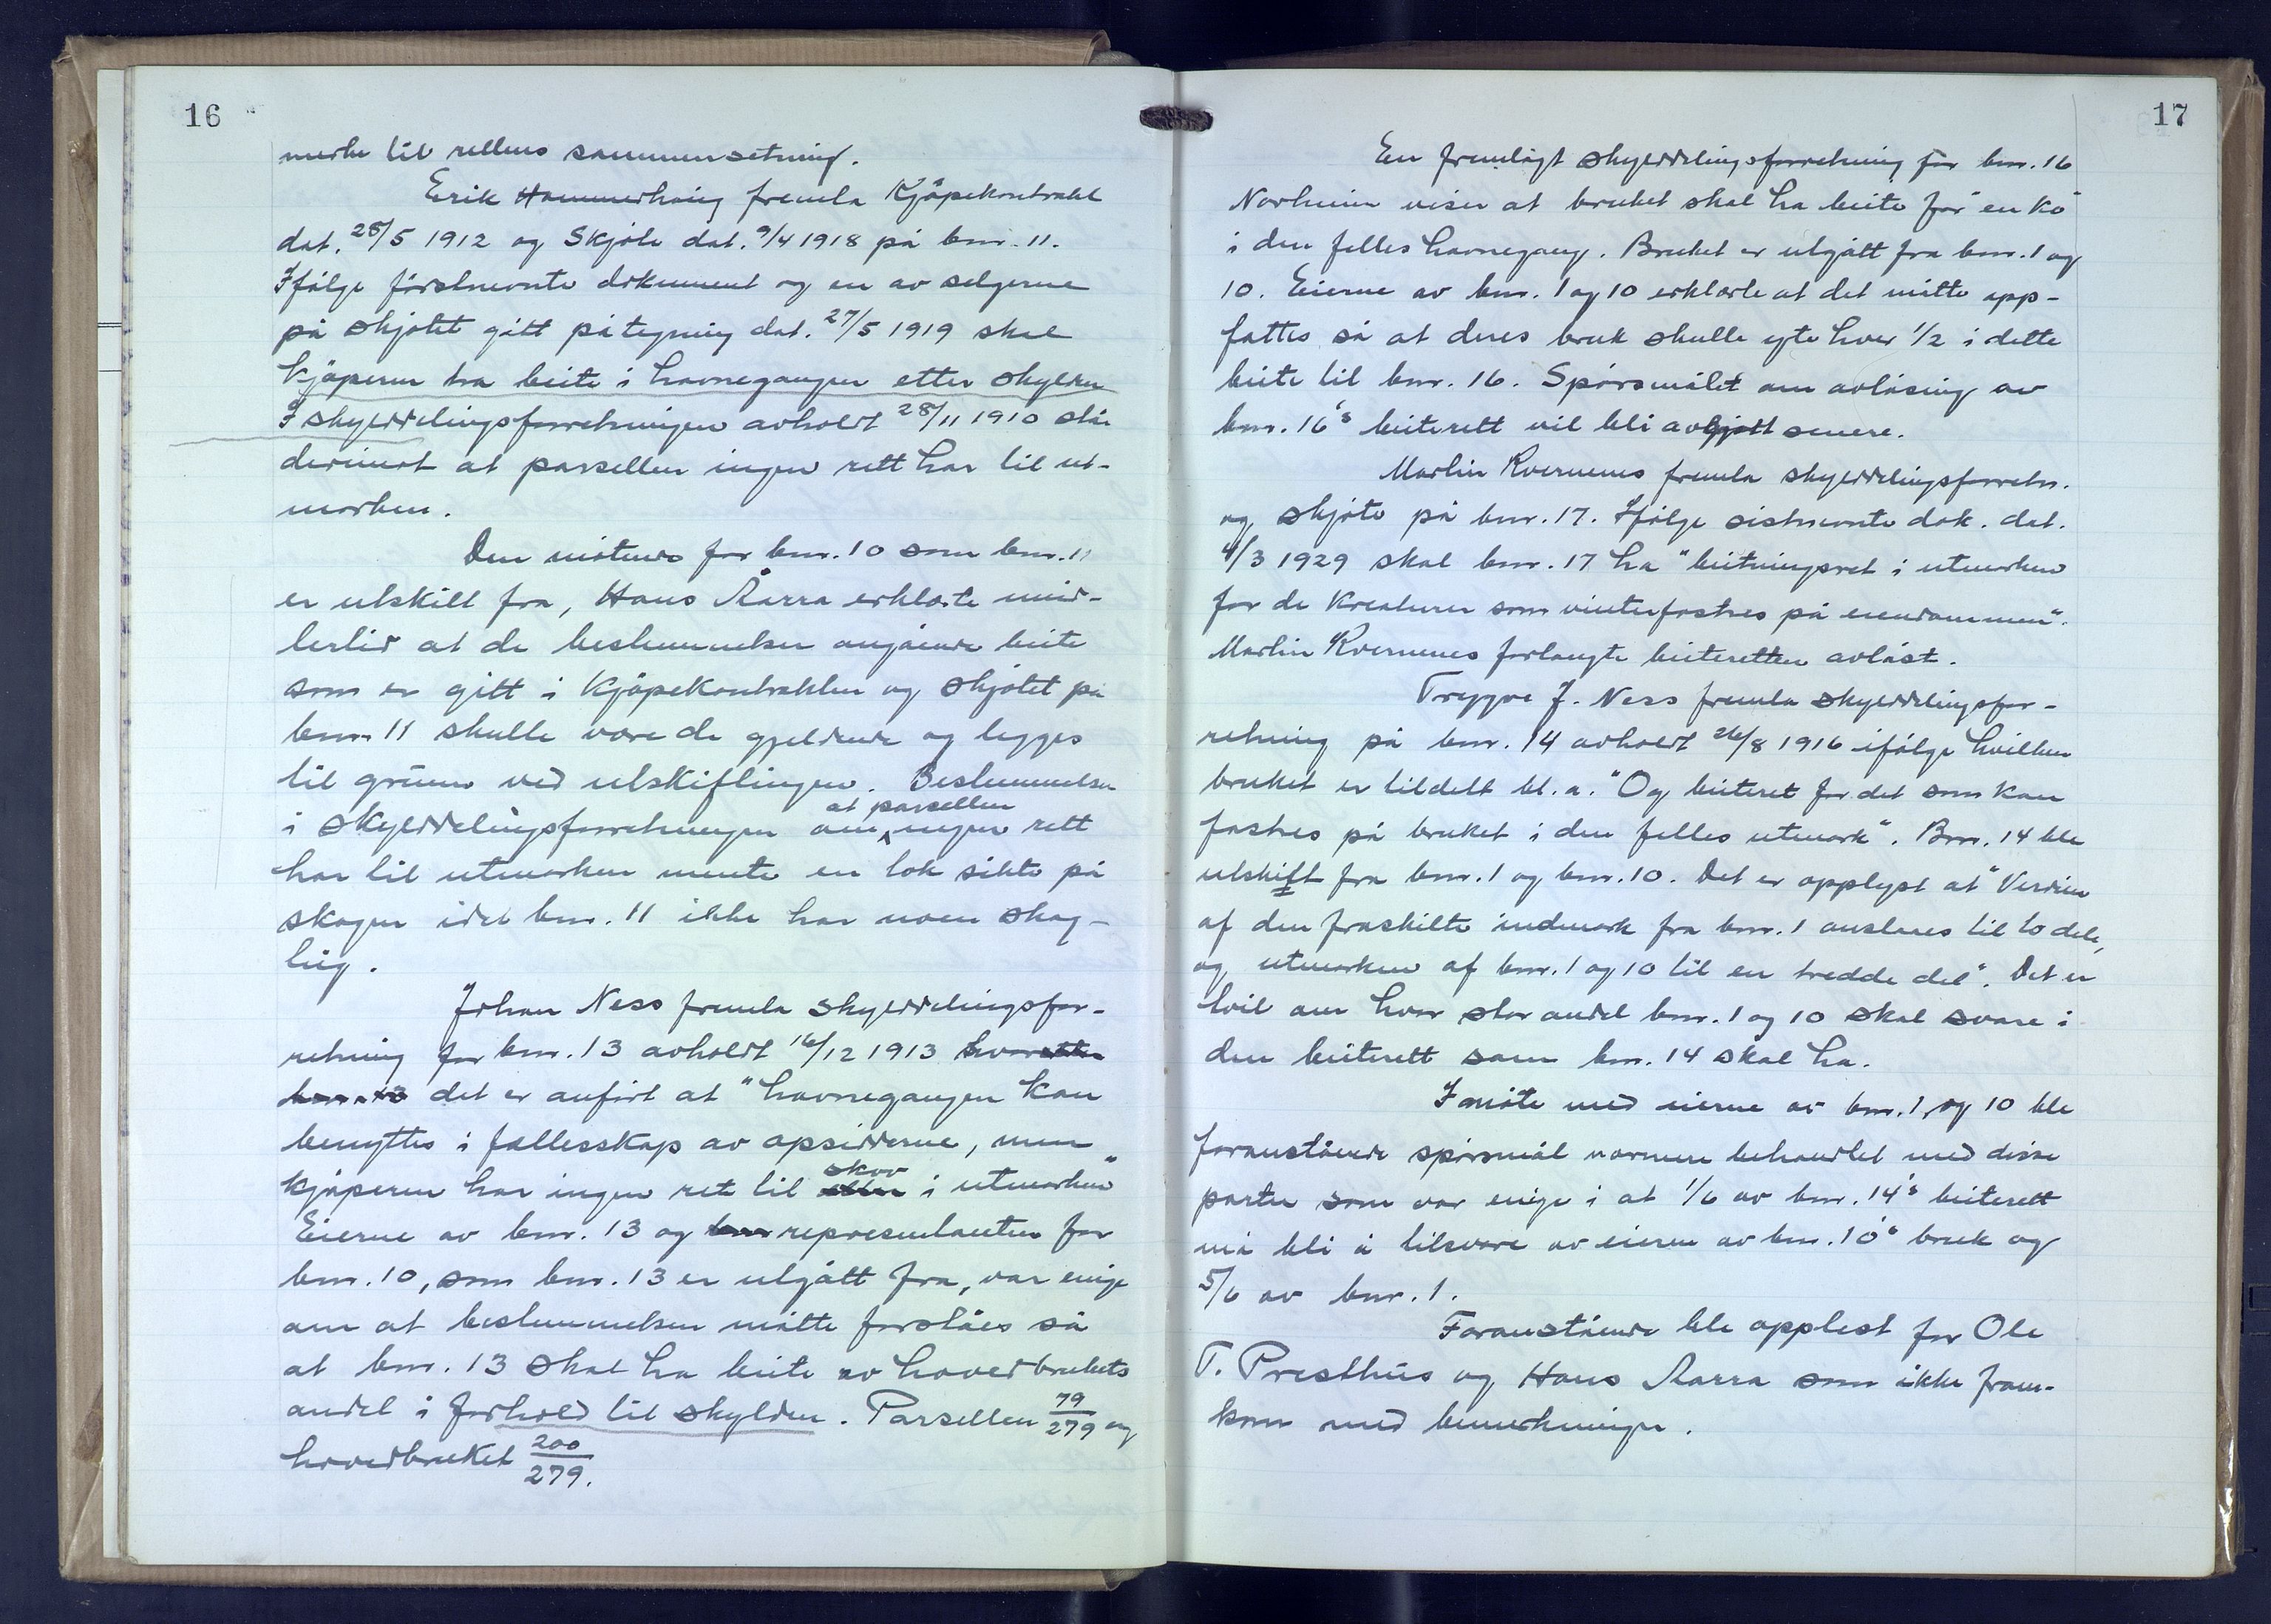 16
merke til rettens sammensetning.
Erik Hammerhaug fremla Kjøpekontrakt
dat. 28/5 1912 og Skjøte dat. 9/4 1918 på bnr. 11.
Ifølge førstnevnte dokument og en av selgerne
på skjøtet gitt påtegning dat. 27/5 1919 skal
kjøperen ha beite i havnegangen etter skylden
I skylddelingsforretningen avholdt 28/11 1910 står
derimot at parsellen ingen rett har til ut-
marken.
Den møtende for bnr. 10 som bnr. 11
er utskilt fra, Hans Aarra erklærte imid-
lertid at de bestemmelser angående beite
som er gitt i Kjøpekontrakten og skjøtet på
bnr. 11 skulle være de gjeldende og legges
til grunn ved utskiftingen. Bestemmelsen
i skylddelingsforretningen om at parsellen ingen rett
har til utmarken mente en tok sikte på
skogen idet bnr. 11 ikke har noen skog-
teig.
Johan Ness fremla skylddelingsfor-
retning for bnr. 13 avholdt 16/12 1913 hvoretter
bnr. 13 det er anført at "havnegangen kan
benyttes i fællesskap av opsidderne, men
kjøperen har ingen ret til skov i utmarken"
Eierne av bnr. 13 og bnr representanten for
bnr. 10, som bnr. 13 er utgått fra, var enige
om at bestemmelsen måtte forståes så
at bnr. 13 skal ha beite av hovedbrukets
andel i forhold til skylden. Parsellen 79/279 og
hovedbruket 200/279.
17
En fremlagt skylddelingsforretning for bnr. 16
Norheim viser at bruket skal ha beite for "en ko"
i den felles havnegang. Bruket er utgått fra bnr. 1 og
10. Eierne av bnr. 1 og 10 erklærte at det måtte opp-
fattes så at deres bruk skulle yte hver 1/2 i dette
beite til bnr. 16. Spørsmålet om avløsing av
bnr. 16's beiterett vil bli avgjort senere.
Martin Kvernenes fremla skylddelingsforretn.
og skjøte på bnr. 17. Ifølge sistnevnte dok. dat.
4/3 1929 skal bnr. 17 ha "beitningsret i utmarken
for de kreaturer som vinterfostres på eiendommen".
Martin Kvernenes forlangte beiteretten avløst.
Trygve J. Ness fremla skylddelingsfor-
retning på bnr. 14 avholdt 26/8 1916 ifølge hvilken
bruket er tildelt bl. a. "Og beiteret for det som kan
fostres på bruket i den felles utmark". Bnr. 14 ble
utskift fra bnr. 1 og bnr. 10. Det er opplyst at "Verdien
af den fraskilte indmark fra bnr. 1 anslaaes til to dele,
og utmarken af bnr. 1 og 10 til en tredde del". Det er
tvil om hvor stor andel bnr. 1 og 10 skal svare i
den beiterett som bnr. 14 skal ha.
I møte med eierne av bnr. 1 og 10 ble
foranstående spørsmål nærmere behandlet med disse
parter som var enige i at 1/6 av bnr. 14's beiterett
må bli å tilsvare av eieren av bnr. 10's bruk og
5/6 av bnr. 1.
Foranstående ble opplest for Ole
T. Presthus og Hans Aarra som ikke frem-
kom med bemerkninger.